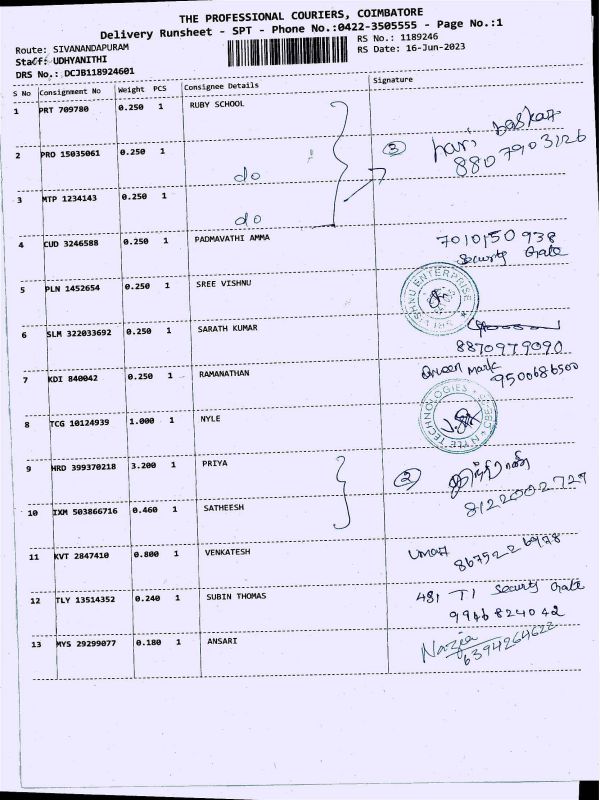 THE PROFESSIONAL COURIERS, COIMBATORE
Delivery Runsheet - SPT - Phone No.:0422-3505555 - Page No.:1
Route: SIVANANDAPURAM
RS No.: 1189246
Staff: UDHYANITHI
RS Date: 16-Jun-2023
DRS No.: DCJB118924601
S No Consignment No Weight PCS Consignee Details Signature
1 PRT 709780 0.250 1 RUBY SCHOOL
hari baskar
2 PRO 15035061 0.250 1 do 3 8807903126
3 MTP 1234143 0.250 1 do
4 CUD 3246588 0.250 1 PADMAVATHI AMMA 7010150938
Security Gate
5 PLN 1452654 0.250 1 SREE VISHNU SHRI VISHNU ENTERPRISE
6 SLM 322033692 0.250 1 SARATH KUMAR
8870979090
7 KDI 840042 0.250 1 RAMANATHAN Queen Mark
9500686500
8 TCG 10124939 1.000 1 NYLE NYLE TECHNOLOGIES
9 HRD 399370218 3.200 1 PRIYA 2
10 IXM 503866716 0.460 1 SATHEESH 8122002729
11 KVT 2847410 0.800 1 VENKATESH
12 TLY 13514352 0.240 1 SUBIN THOMAS 481 T1 Security Gate
9946824042
13 MYS 29299077 0.180 1 ANSARI Nazia
6394264628